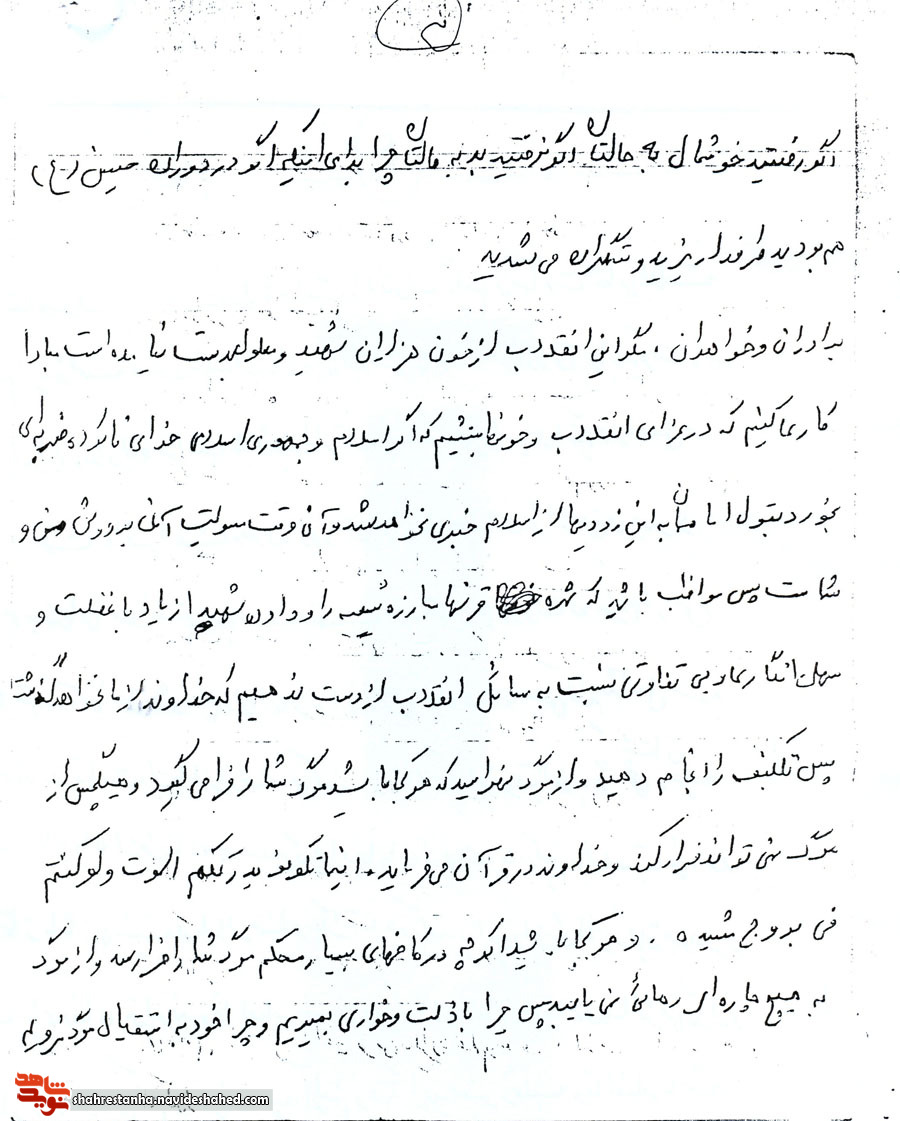 اگر رفتید خوشحال به حالتان اگر نرفتید بد به حالتان چرا برای اینکه اگر در دوران حسین (ع)
هم بودید طرفدار یزید و ستمگران می شدید
برادران و خواهران ، مگر این انقلاب از خون هزاران شهید و معلول بدست نیامده است مبادا
کاری کنیم که در عزای انقلاب و خونها بنشینیم که اگر اسلام و جمهوری اسلامی خدای ناکرده ضربه ای
بخورد بقول اماممان به این زودیها از اسلام خبری نخواهد شد و آن وقت مسولیت آن بر دوش من و
شماست پس مواظب باشید که ثمره قرنها مبارزه شیعه را و دادن شهید از یاد با غفلت و
سهل انگاری و بی تفاوتی نسبت به مسائل انقلاب از دست ندهیم که خداوند از ما نخواهد گذشت
پس تکلیف را انجام دهید و از مرگ نهراسید که هر کجا باشید مرگ شما را فرا می گیرد و هیچکس از
مرگ نمی تواند فرار کند و خداوند در قرآن می فرماید. اینما تکونو یدرککم الموت ولو کنتم
فی بروج مشیده . و هر کجا باشید اگر چه در کاخهای بسیار محکم مرگ شما را فرا رسد و از مرگ
به هیچ چاره ای رهائی نمی یابید پس چرا با ذلت و خواری بمیریم و چرا خود به استقبال مرگ نرویم
نوید شاهد
shahrestanha.navideshahed.com